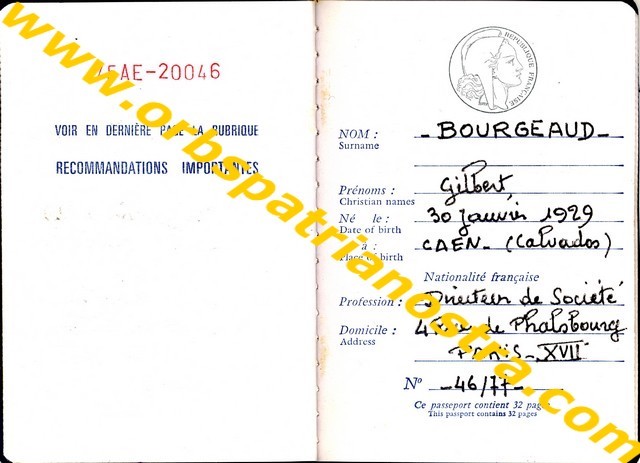 www.orbspatrianostra.com
5AE-20046
VOIR EN DERNIÈRE PAGE LA RUBRIQUE
RECOMMANDATIONS IMPORTANTES
RÉPUBLIQUE FRANÇAISE
NOM : - BOURGEAUD -
Surname
Prénoms : Gilbert,
Christian names
Né le : 30 Janvier 1929
Date of birth
à : CAEN - (Calvados)
Place of birth
Nationalité française
Profession : Directeur de Société
Domicile : 4 Rue de Phalsbourg
Address
PARIS - XVII
N° - 46/77 -
Ce passeport contient 32 pages
This passport contains 32 pages